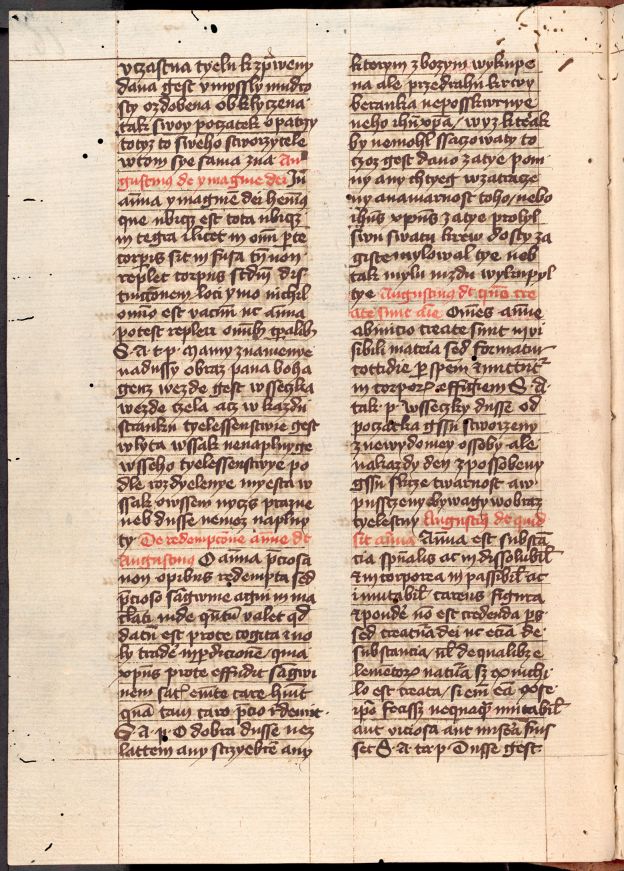 vczastna tyelu k zprweny
dana gest v myssly mudro
sty ozdobena obklyczena
tak swoy poczatek opatrzy
totyz to sweho stworzytele
w tom sye sama zna Au
gustinus de ymagine dei In
anima ymagine dei
que ubique est tota ubique
integra
corporis sit
replet corpus
loci ymo nichil
omnino est vacuum ut anima
potest repleri
S. A. t. p. Mamy znamenye
na dussy obraz pana boha
genz wezde gest wsseczka
wezde czela acz w kazdu
stranku tyelessenstwie gest
wlyta wssak nenaplnyge
wsseho tyelessenstwye po
dle rozdyelenye myesta w
ssak owssem nyczs prazne
neb dusse nenez naplny
ty De redempcione anime dt
Augustinus O anima preciosa
non opibus redempta sed
precioso sangwine agni
valet qd
datum est pro te cogita et no
ly trade in perdicione quia
xpus pro te effudit sangwi
nem
quam tam caro precio redemit
S. A. p. O dobra dusse nez
lattem any strzyebrem any
ktorym zbozym wykupe
na ale przedrahu krwy
beranka neposskwrnye
neho ihu xpa, wyz kterak
by nemohl ssaczowaty to
czoz gest dano za tye pom
ny any chtyeg w zatracze
ny ana marnost toho, nebo
ihus xpus za tye prolyl
swu swatu krew dosty za
giste mylowal tye neb
tak mylu mzdu wykupyl
tye Augustinus dt
ate sunt Omnes anime
ab inicio create sunt
sibili materia sed formantur
cottidie per
in corporis effigiem S. A.
tak p. wsseczky dusse od
poczatka gssu stworzeny
z newydomey ossoby ale
na kazdy den zpossobeny
gssu skrze twarnost a w
pusstzeny bywagy w obraz
tyelestny Augustinus dt quid
sit anima Anima est substan
cia spiritualis ac indissolubilis
et incorporea inpassibilis ac
inmutabilis carens figura
et pondere non est credenda pars
sed creatura dei
substancia, de qualibet e
lementorum natura sed ex nichi
lo est creata, si enim eam ex se
ipso fecisset nequaquam mutabilis
aut viciosa aut misera fuis
set S. A. ta p. Dusse gest